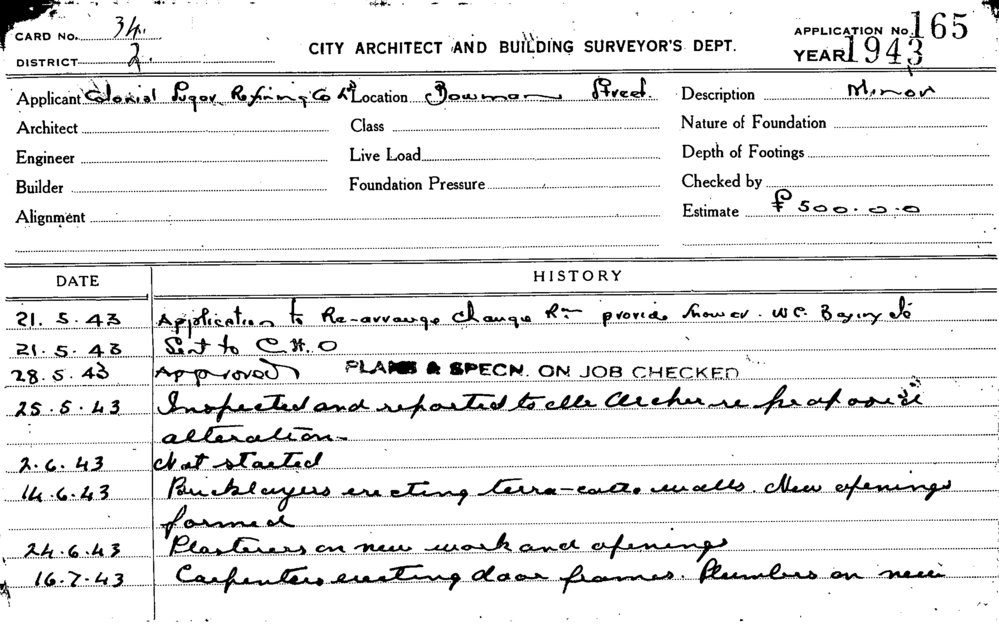 CARD No. 34.
DISTRICT 2.
CITY ARCHITECT AND BUILDING SURVEYOR'S DEPT.
APPLICATION No. 165
YEAR 1943
Applicant Colonial Sugar Refining Co Ltd Location Bowman Street. Description Minor
Architect Class Nature of Foundation
Engineer Live Load Depth of Footings
Builder Foundation Pressure Checked by
Alignment Estimate £500.0.0
DATE HISTORY
21.5.43 Application to Re-arrange change Rm provide shower. WC.
21.5.43 Sent to C.H.O
28.5.43 Approved PLANS & SPECN. ON JOB CHECKED
25.5.43 Inspected and reported to Mr Archer re proposed
alteration
2.6.43 Not started
14.6.43 Bricklayers erecting terra-cotta walls. New openings
formed
24.6.43 Plasterers on new work and openings
16.7.43 Carpenters erecting door frames. Plumbers on new